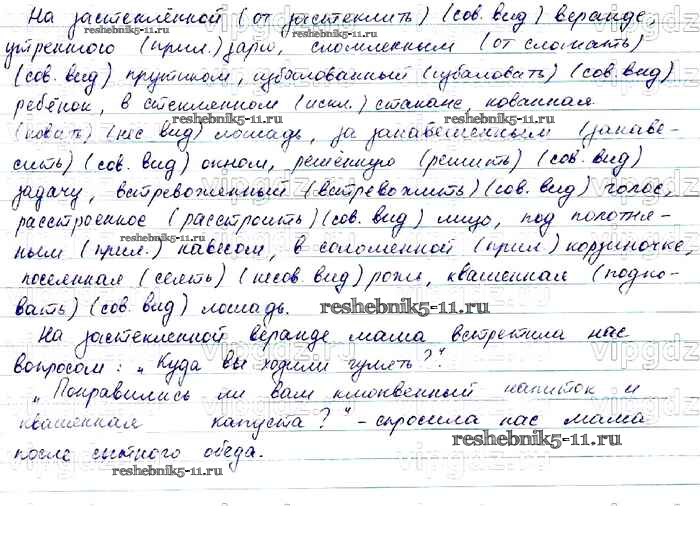 На застеклённой (от застеклить) (сов. вид) веранде,
утреннюю (прил.) зарю, сломленным (от сломать)
(сов. вид) прутиком, избалованный (избаловать) (сов. вид)
ребёнок, в стеклянном (искл.) стакане, кованная
(ковать) (нес вид) лошадь, за занавешенным (занаве-
сить) (сов. вид) окном, решённую (решить) (сов. вид)
задачу, встревоженный (встревожить) (сов. вид) голос,
расстроенное (расстроить) (сов. вид) лицо, под полотня-
ным (прил.) навесом, в соломенной (прил.) корзиночке,
посеянная (сеять) (несов. вид) рожь, квашенная (подко-
вать) (сов. вид) лошадь.
На застекленной веранде мама встретила нас
вопросом: „Куда вы ходили гулять?“
„Понравились ли вам клюквенный напиток и
квашенная капуста?“ - спросила нас мама
после сытного обеда.
reshebnik5-11.ru
vipgdz.ru